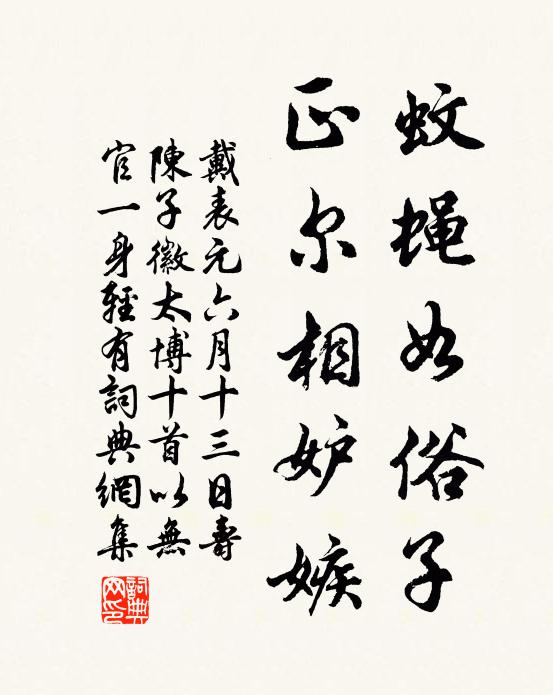 蚊蝇如俗子
正尔相妒嫉
戴表元六月十三日壽
陳子徽太博十首以無
官一身輕有詞典網集
詞典
网印